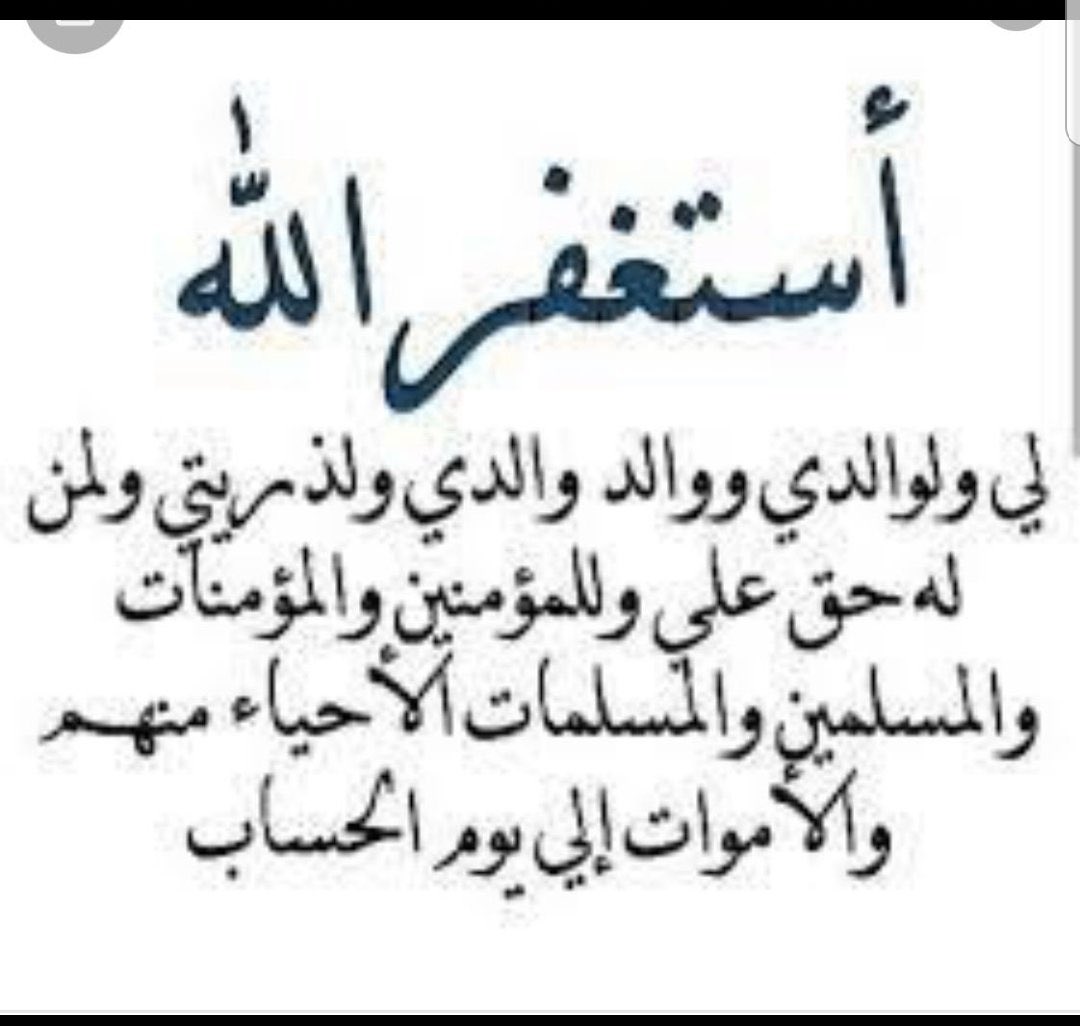 أستغفر الله
لي ولوالدي ووالد والدي ولذريتي ولمن
له حق علي وللمؤمنين والمؤمنات
والمسلمين والمسلمات الأحياء منهم
والأموات إلي يوم الحساب